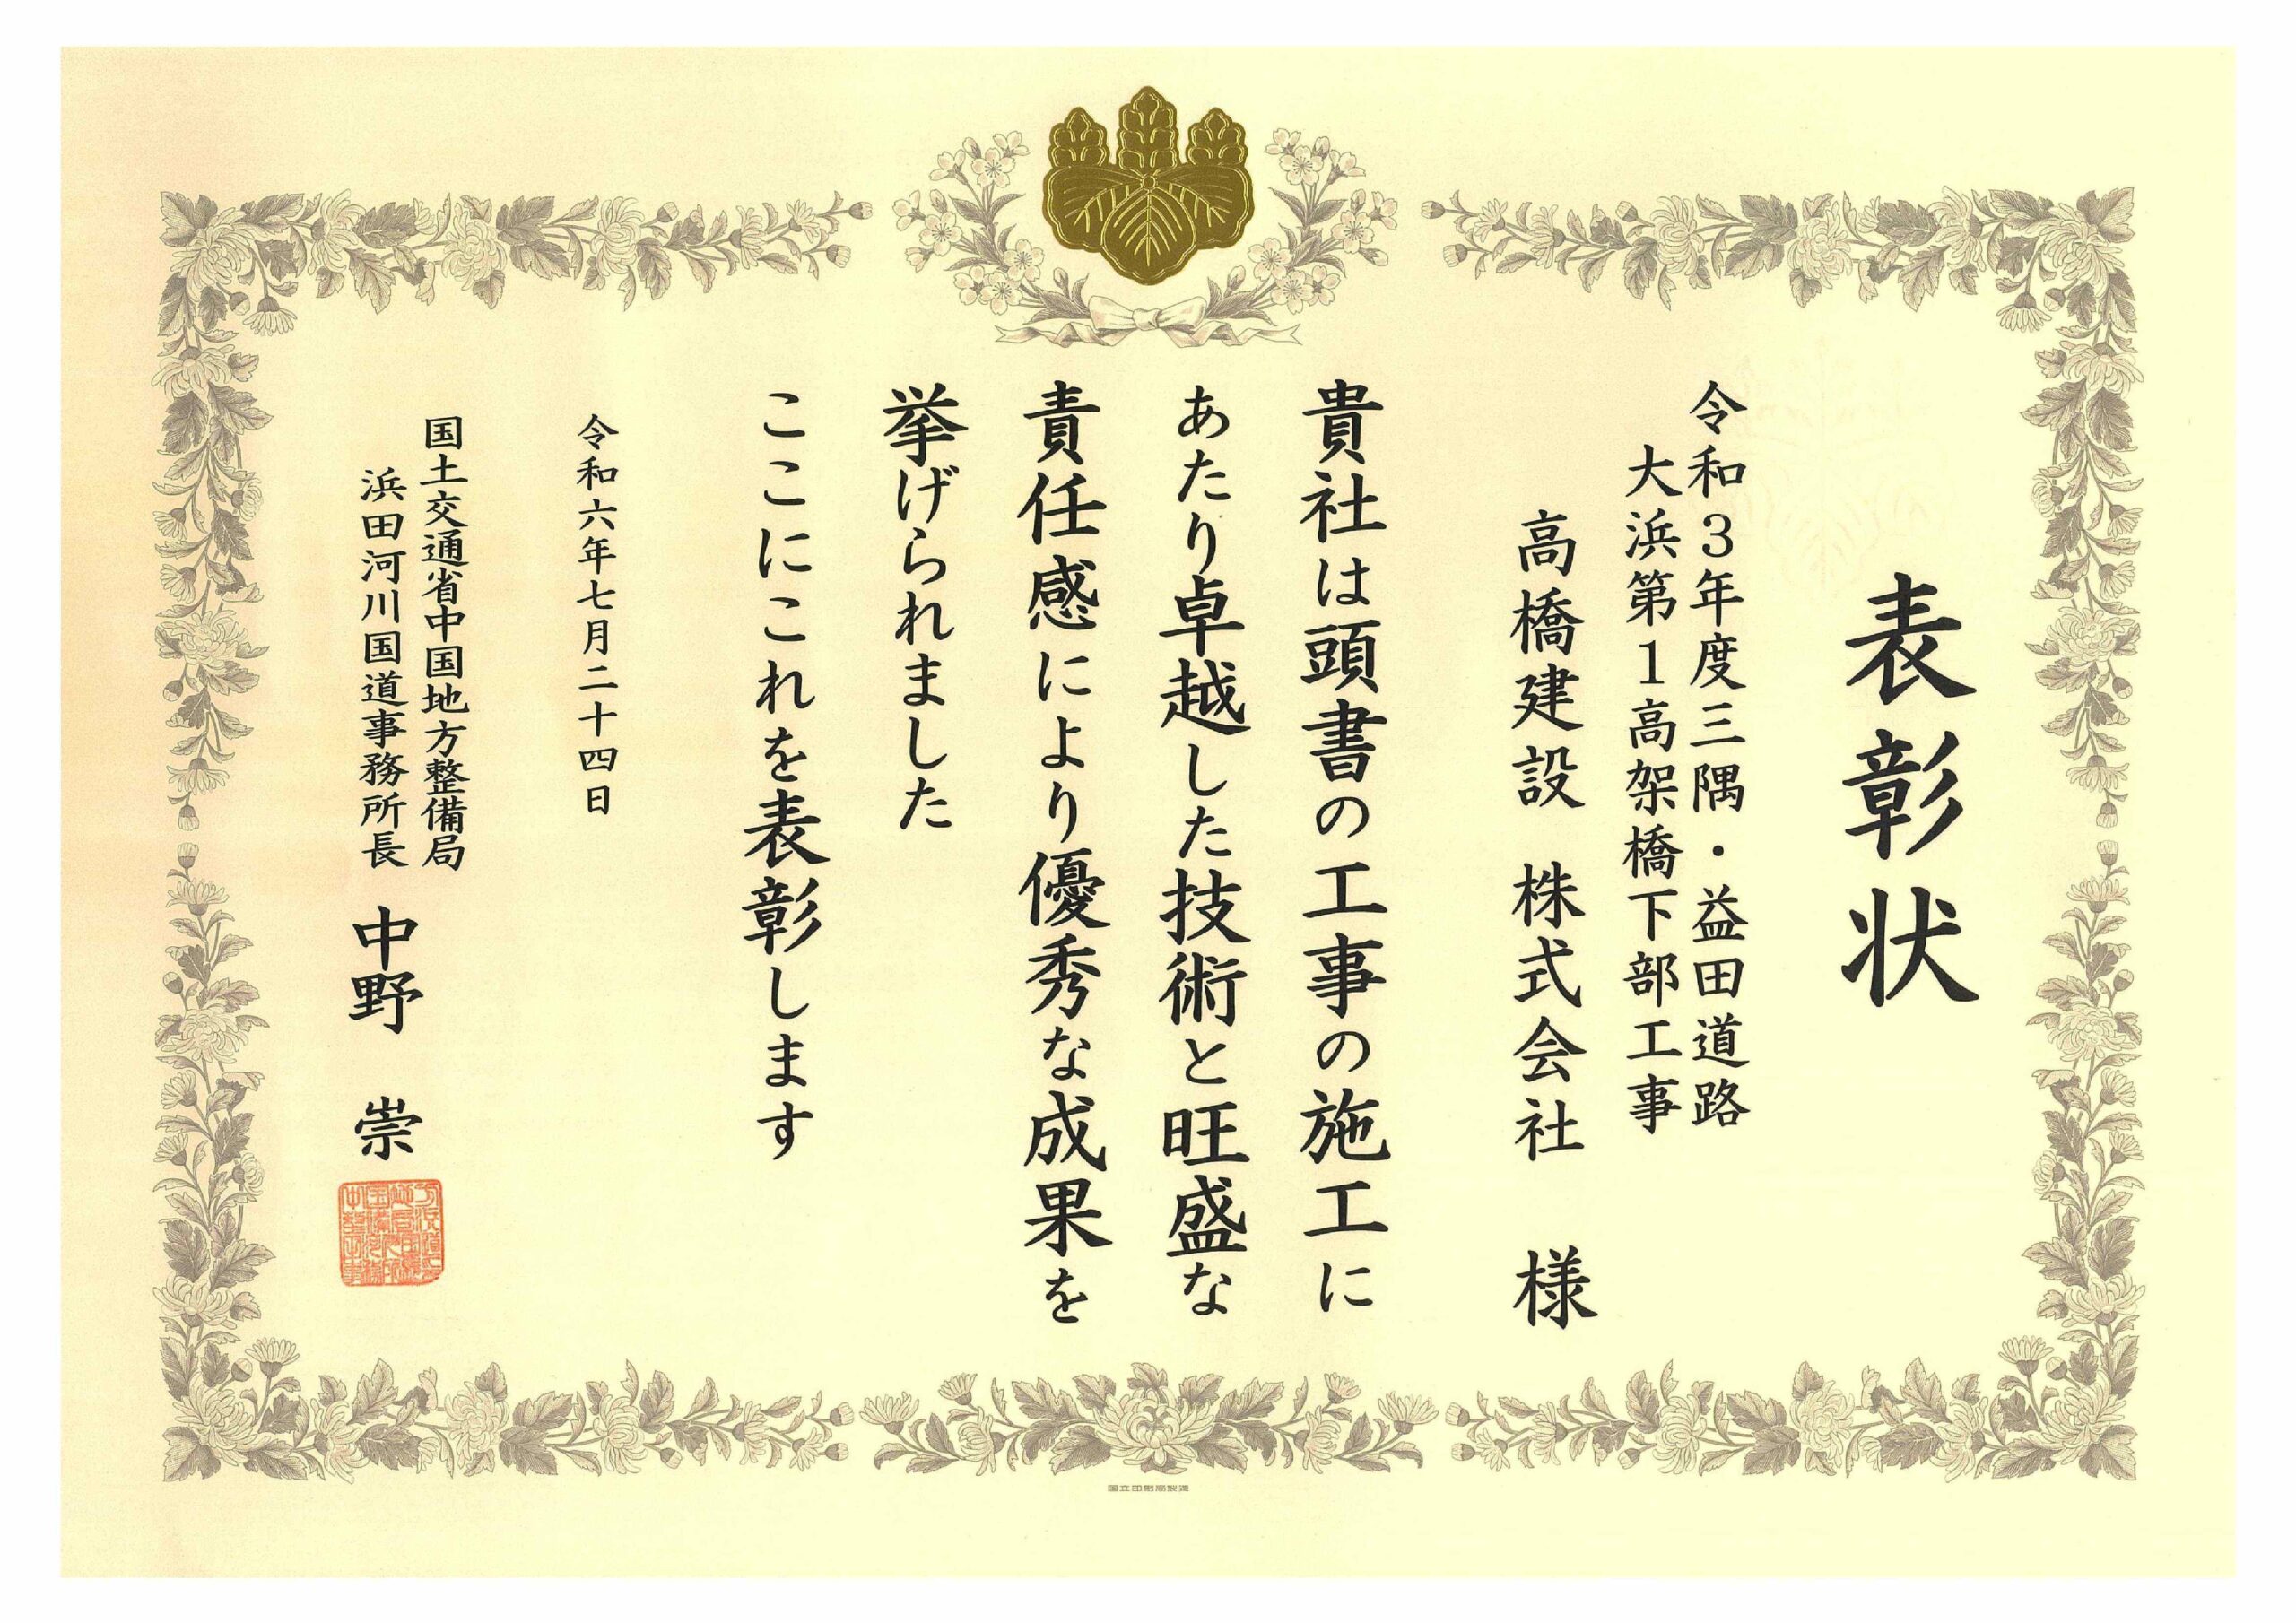 表彰状
令和3年度三隅・益田道路
大浜第1高架橋下部工事
高橋建設 株式会社 様
貴社は頭書の工事の施工に
あたり卓越した技術と旺盛な
責任感により優秀な成果を
挙げられました
ここにこれを表彰します
令和六年七月二十四日
国土交通省中国地方整備局
浜田河川国道事務所長 中野 崇
国立印刷局製造